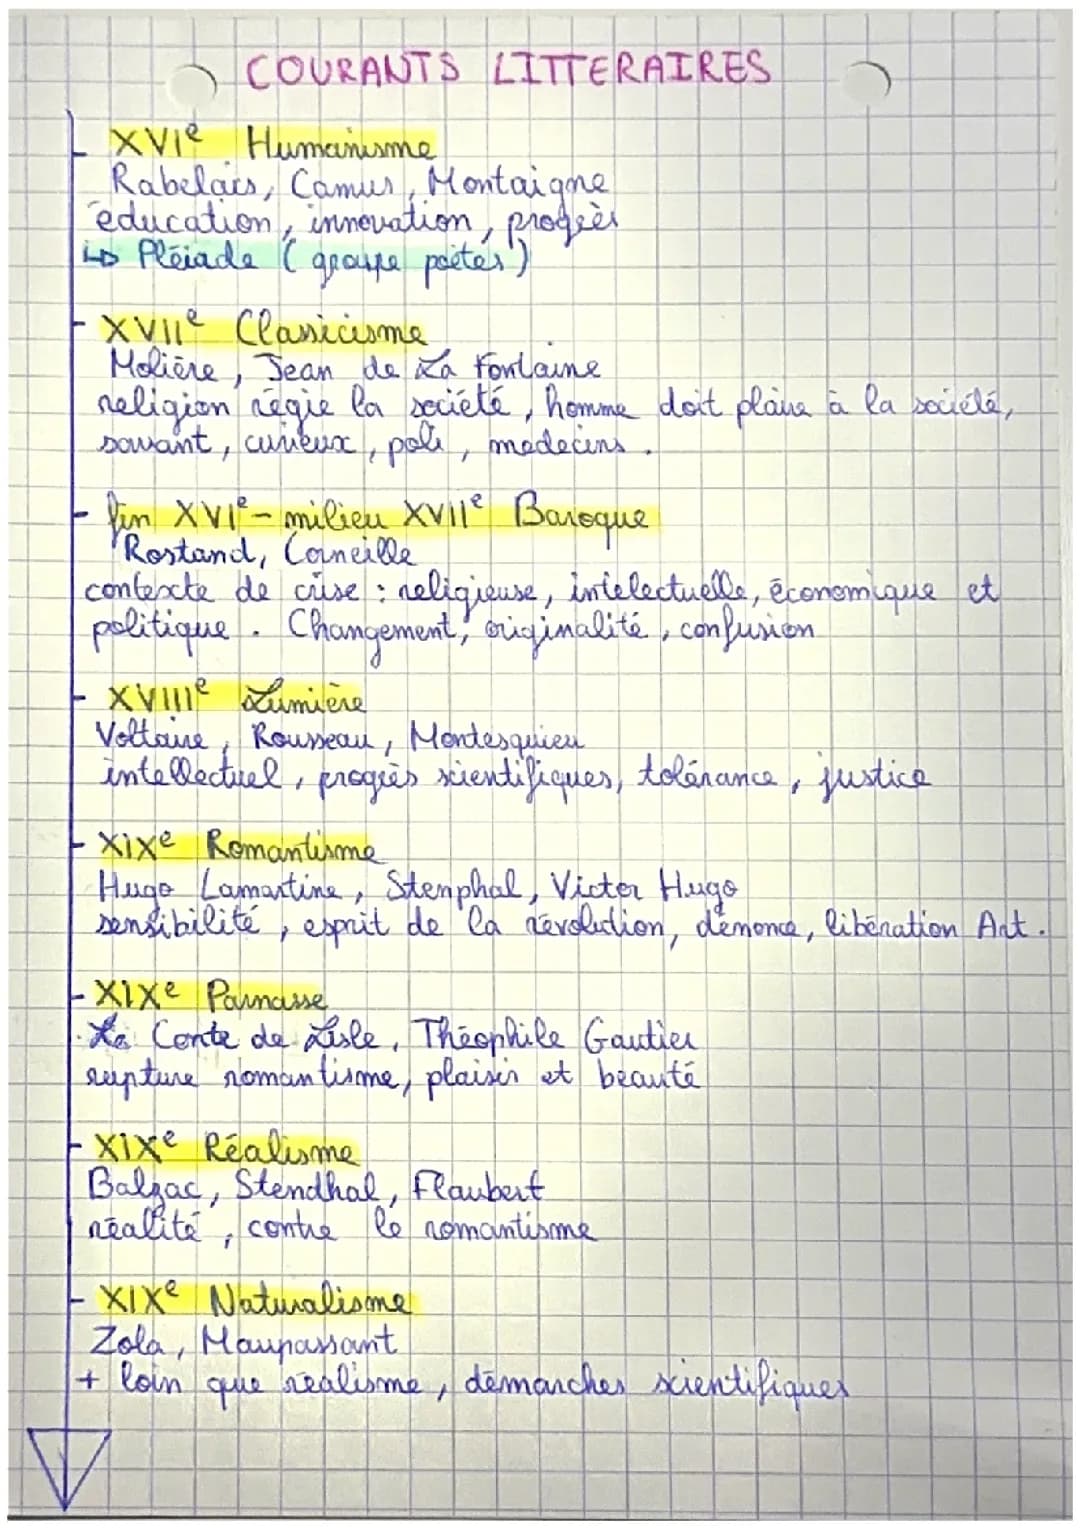 COURANTS LITTERAIRES
XVIe Humanisme
Rabelais, Camus, Montaigne
éducation, innovation, progrès
↳ Pléiade (groupe poètes)
XVIIe Classicisme
Molière, Jean de La Fontaine
religion régie la société, homme doit plaire à la société,
savant, curieux, poli, medecins.
fin XVIe - milieu XVIIe Baroque
Rostand, Corneille
contexte de crise : religieuse, intelectuelle, économique et
politique. Changement, originalité, confusion
XVIIIe Lumière
Voltaire, Rousseau, Montesquieu
intellectuel, progrès scientifiques, tolérance, justice
XIXe Romantisme
Hugo Lamartine, Stenphal, Victor Hugo
sensibilité, esprit de la révolution, dénonce, libération Art.
XIXe Parnasse
Le Conte de Lisle, Théophile Gautier
rupture romantisme, plaisir et beauté
XIXe Réalisme
Balzac, Stendhal, Flaubert
réalité, contre le romantisme
XIXe Naturalisme
Zola, Maupassant
+ loin que réalisme, démarches scientifiques